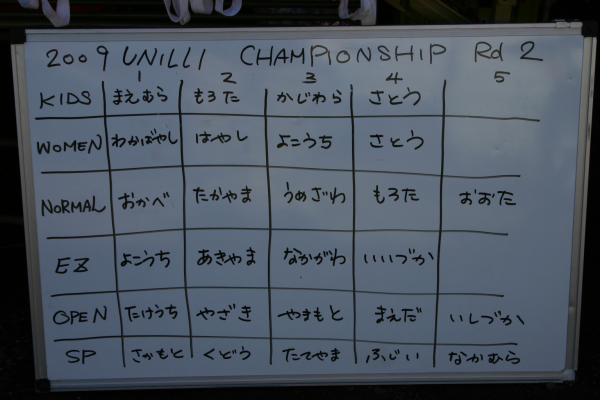 2009 UNILLI CHAMPIONSHIP Rd 2
1 2 3 4 5
KIDS まえむら もろた かじわら さとう
WOMEN わかばやし はやし よこうち さとう
NORMAL おかべ たかやま うめざわ もろた おおた
EZ よこうち あきやま なかがわ いいづか
OPEN たけうち やざき やまもと まえだ いしづか
SP さかもと くどう たてやま ふじい なかむら